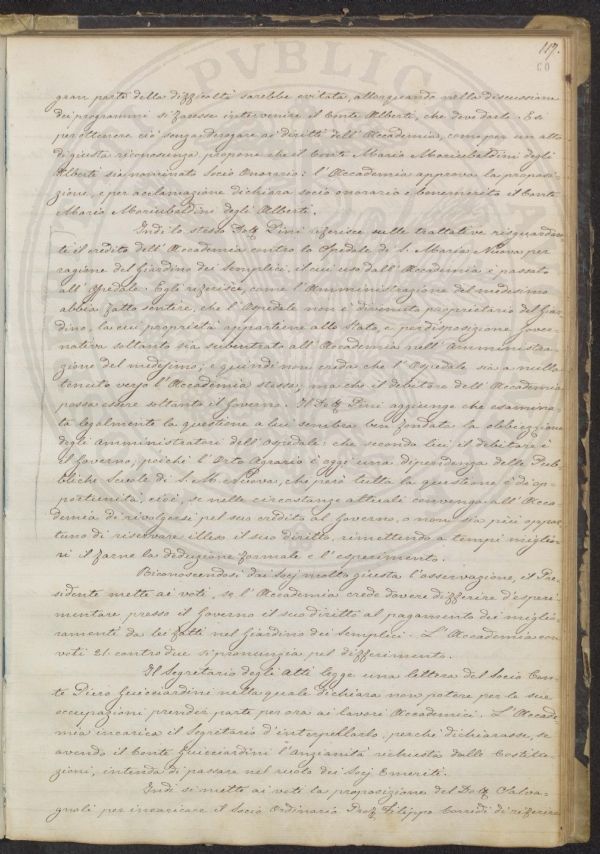 117.
gran parte delle difficoltà sarebbe evitata, allorquando nella discussione
dei programmi si facesse intervenire il Conte Alberti, che deve darli. E si
per ottenere ciò senza derogare ai diritti dell'Accademia, come per un atto
di giusta riconoscenza propone che il Conte Mario Moriubaldini degli
Alberti sia nominato Socio Onorario: l'Accademia approva la proposi-
zione, e per acclamazione dichiara socio onorario e benemerito il Conte
Mario Moriubaldini degli Alberti.
Indi lo stesso Dott. Pini riferisce sulle trattative risguardan-
ti il credito dell'Accademia contro lo Spedale di S. Maria Nuova per
cagione del Giardino dei Semplici, il cui uso dall'Accademia è passato
all'Spedale. Egli riferisce, come l'Amministrazione del medesimo
abbia fatto sentire, che l'Ospedale non è divenuto proprietario del Giar-
dino, la cui proprietà appartiene allo Stato, e per disposizione Gover-
nativa soltanto sia subentrato all'Accademia nell'amministra-
zione del medesimo; e quindi non creda che l'Ospedale sia a nulla
tenuto verso l'Accademia stessa, ma che il debitore dell'Accademia
possa essere soltanto il Governo. Il Dott. Pini aggiunge che esamina-
ta legalmente la questione a lui sembra ben fondata la obiezione
degli amministratori dell'Ospedale: che secondo lui il debitore è
il Governo, poichè l'Orto Agrario è oggi una dipendenza delle Pub-
bliche Scuole di S. M. Nuova, che però tutta la questione è di op-
portunità; cioè, se nelle circostanze attuali convenga all'Acca-
demia di rivolgersi pel suo credito al Governo, o non sia più oppor-
tuno di riservare illeso il suo diritto, rimettendo a tempi miglio-
ri il farne la deduzione formale e l'esperimento.
Riconoscendosi dai Socj molto giusta l'osservazione, il Pre-
sidente mette ai voti, se l'Accademia crede dovere differire d'esperi-
mentare presso il Governo il suo diritto al pagamento dei miglio-
ramenti da lei fatti nel Giardino dei Semplici. L'Accademia con
voti 21 contro due si pronunzia pel differimento.
Il Segretario degli Atti legge una lettera del Socio Con-
te Piero Guicciardini nella quale dichiara non potere per le sue
occupazioni prender parte per ora ai lavori Accademici. L'Accade-
mia incarica il Segretario d'interpellarlo, perchè dichiarasse, se
avendo il Conte Guicciardini l'anzianità richiesta dalle Costitu-
zioni, intenda di passare nel ruolo dei Socj Emeriti.
Indi si mette ai voti la proposizione del Dott. Salva-
gnoli per incaricare il Socio Ordinario Prof. Filippo Corridi di riferire